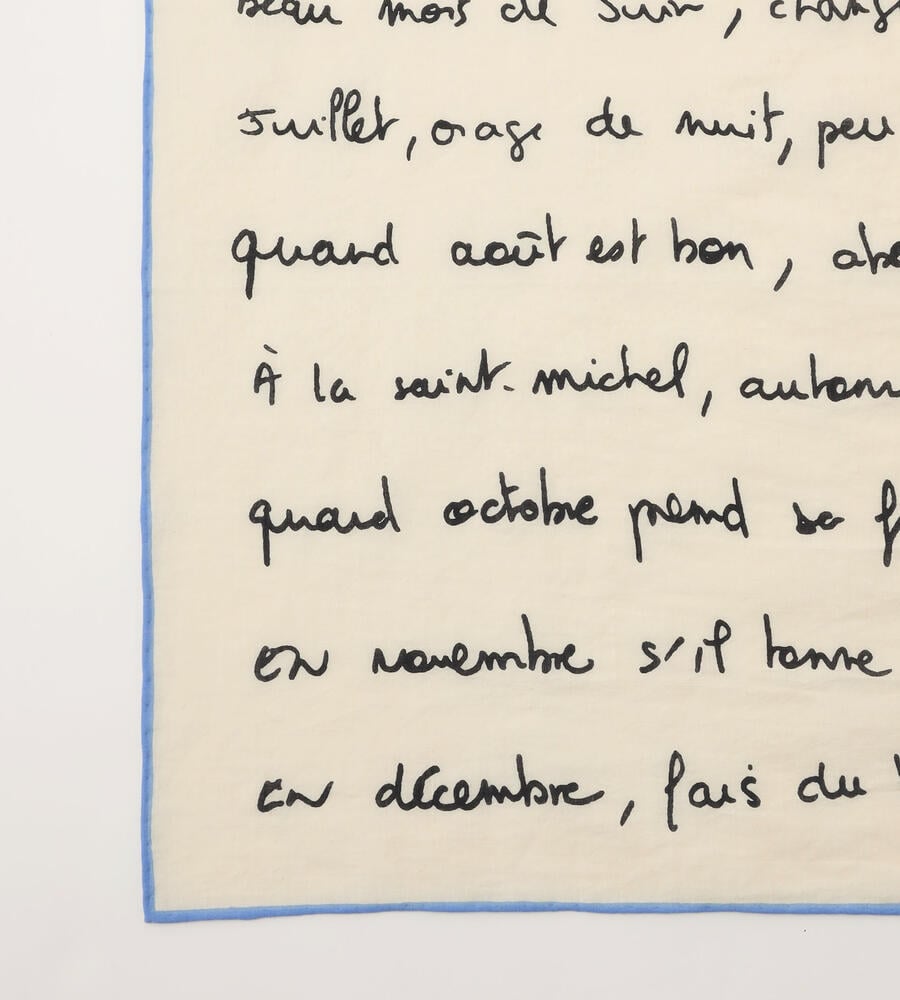 beau mois de Juin, change
Juillet, orage de nuit, peu
quand août est bon, abo
À la saint-michel, autom
quand octobre prend sa f
en novembre s'il tonne
en décembre, fais du